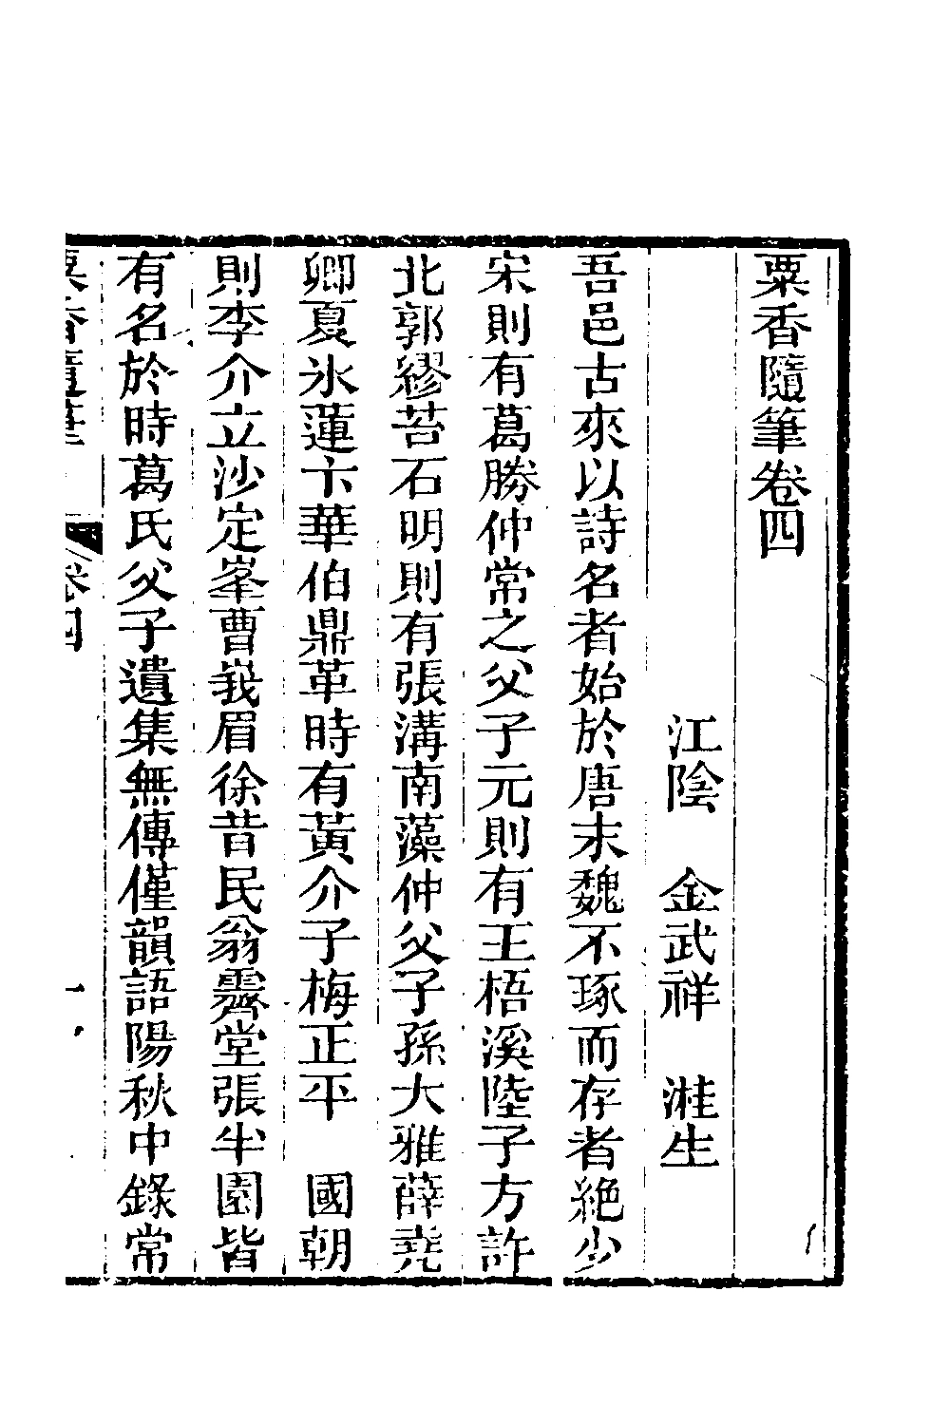 粟香隨筆卷四
江陰　金武祥　溎生
吾邑古來以詩名者始於唐末魏不琢而存者絕少
宋則有葛勝仲常之父子元則有王梧溪陸子方許
北郭繆苔石明則有張溝南藻仲父子孫大雅薛堯
卿夏氷蓮卞華伯鼎革時有黃介子梅正平　國朝
則李介立沙定峯曹峩眉徐昔民翁霽堂張半園皆
有名於時葛氏父子遺集無傳僅韻語陽秋中錄常
粟香隨筆　卷四　一